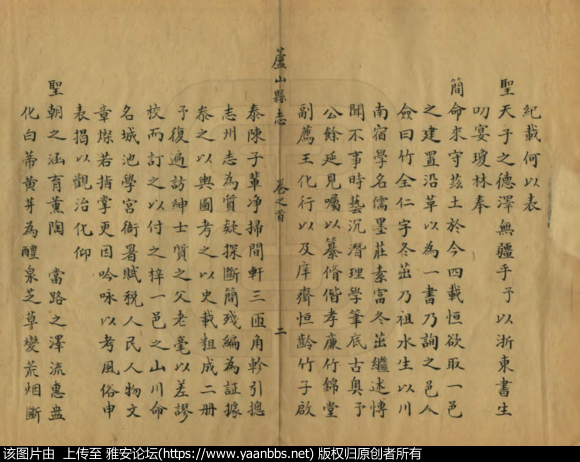 紀載何以表
聖天子之德澤無疆乎予以浙東書生
叨宴瓊林奉
簡命來守茲土於今四載恒欲取一邑
之建置沿革以為一書乃詢之邑人
僉曰竹全仁字冬茁乃祖水生以川
南宿學名儒墨莊素富冬茁繼述博
聞不事時藝沉潛理學筆底古奧予
公餘延見囑以纂脩偕孝廉竹錦堂
副薦王化行以及庠齋恒齡竹子啟
蘆山縣志 卷之首 二
泰陳子輩净掃閒軒三匝角軫引摠
志州志為質疑探斷簡殘編為証據
泰之以輿圖考之以史載粗成二册
予復遍訪紳士質之父老毫以差謬
校而訂之以付之梓一邑之山川命
名城池學宮衙署賦稅人民人物文
章燦若指掌更因吟咏以考風俗申
表揭以觀治化仰
聖朝之涵育薰陶 當路之澤流惠盎
化白茅黃芽為醴泉芝草變荒烟斷
该图片由 上传至 雅安论坛(https://www.yaanbbs.net) 版权归原创者所有